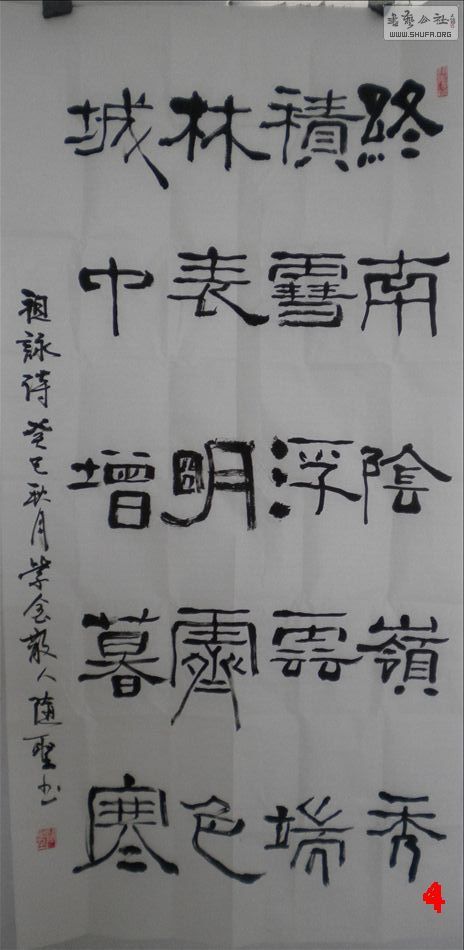 終南陰嶺秀
積雪浮雲端
林表明霽色
城中增暮寒
祖詠诗癸巳秋月紫金散人隨聖书
书艺公社
WWW.SHUFA.ORG
4